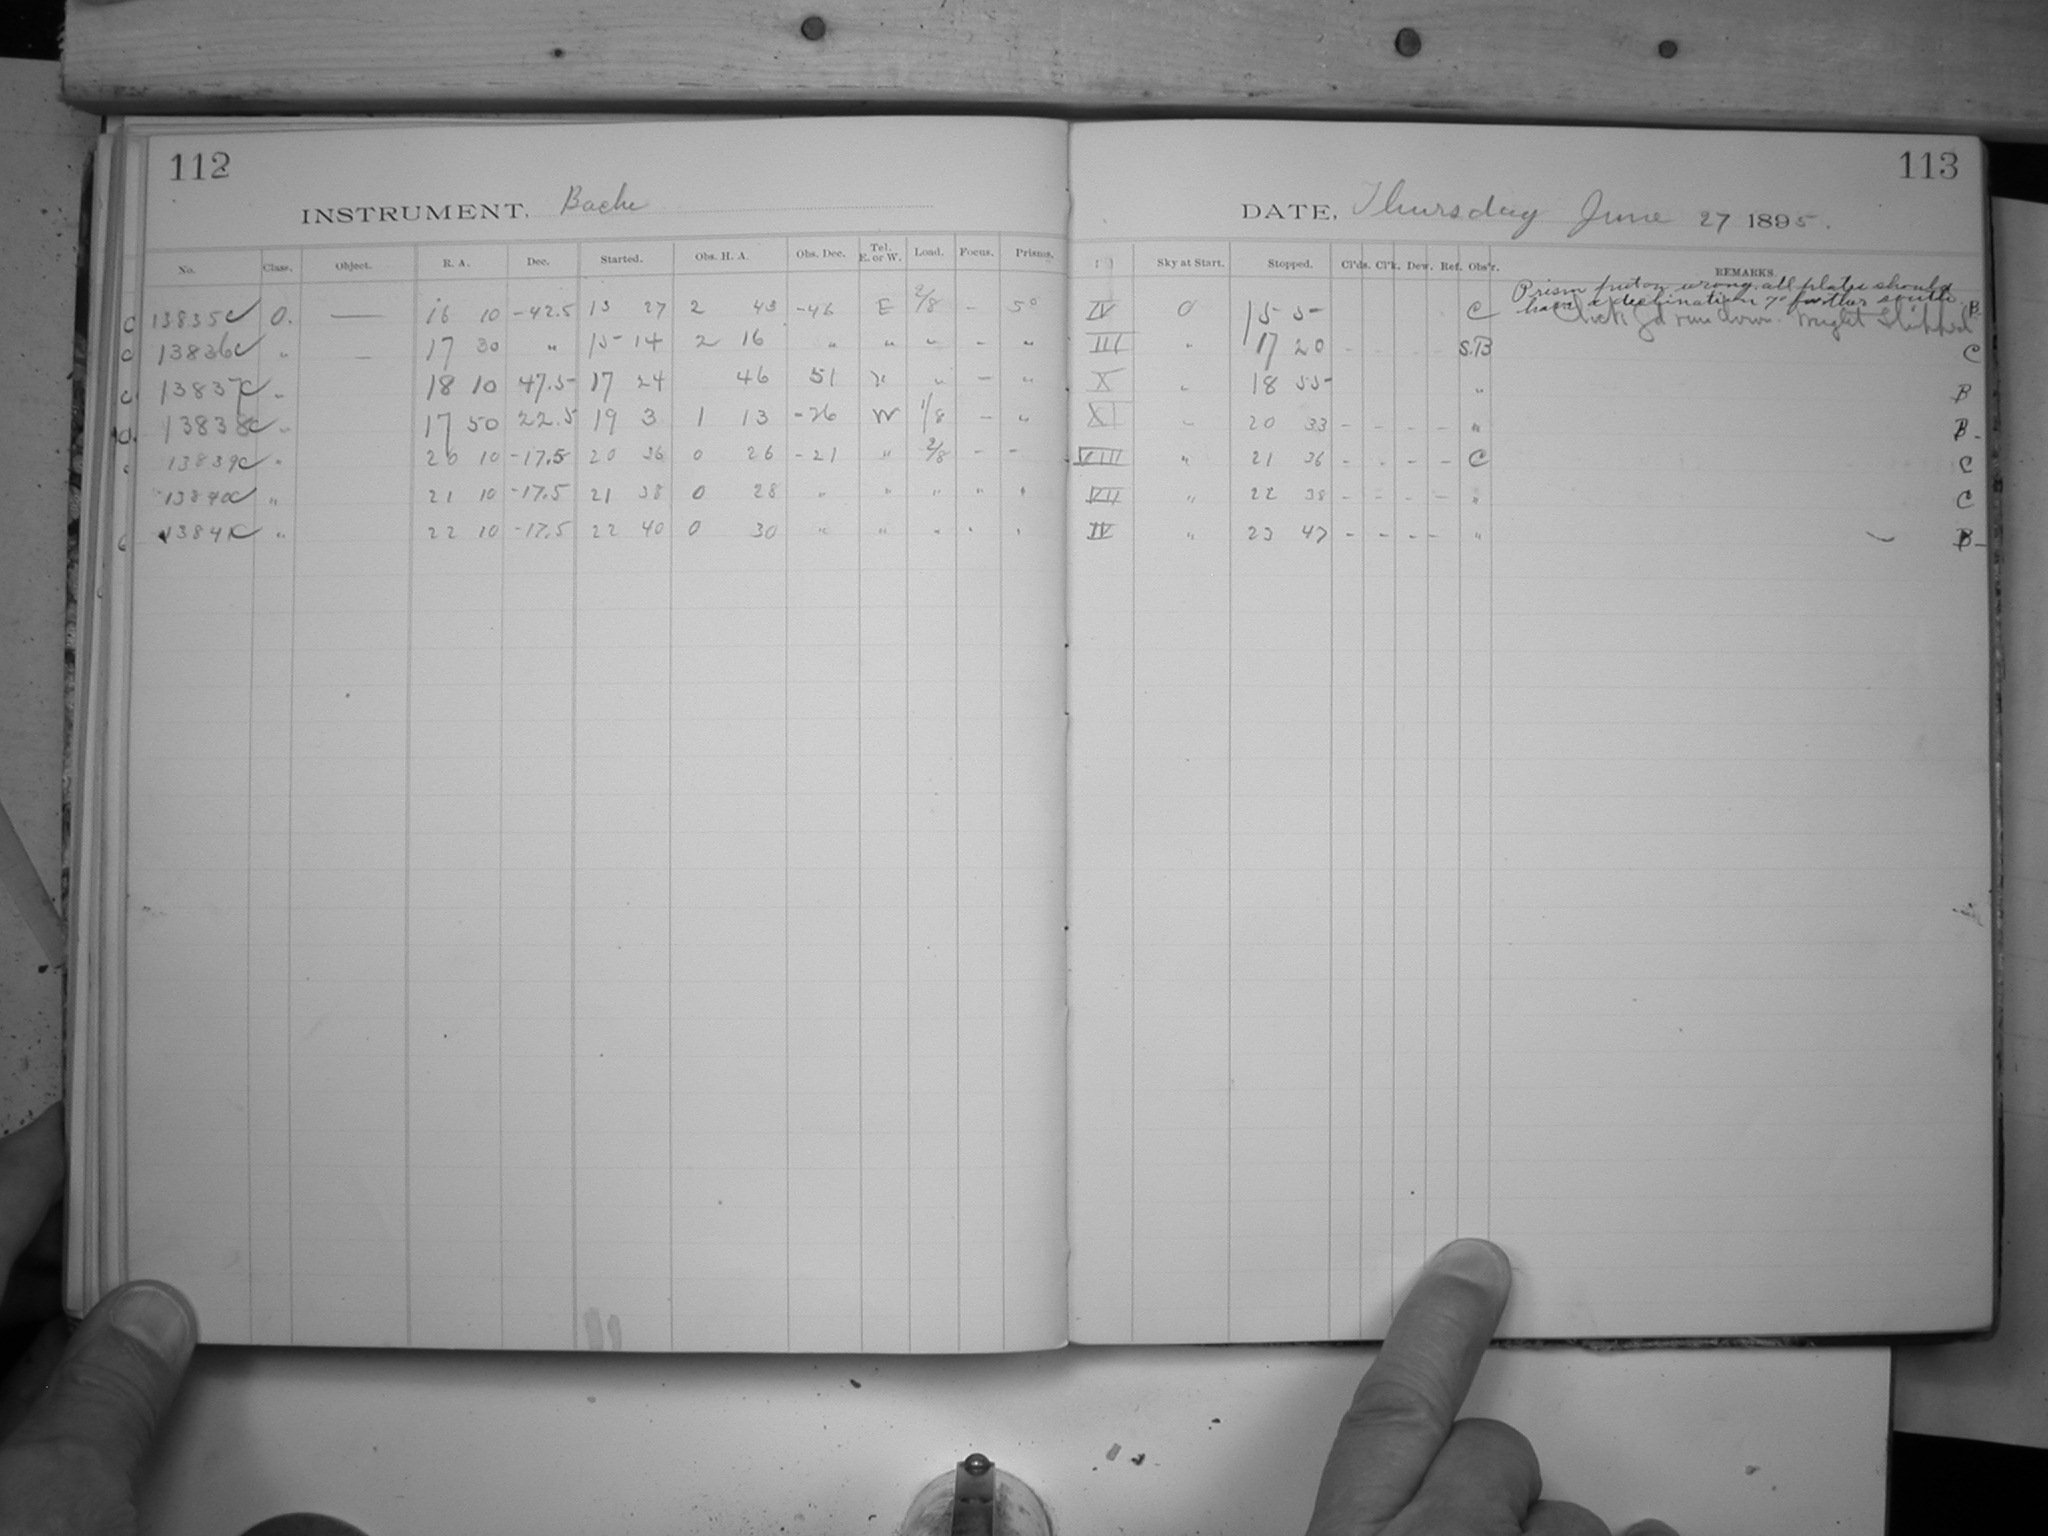 112
INSTRUMENT, Bache
No. Class. Object. R. A. Dec. Started. Obs. H. A. Obs. Dec. Tel. E. or W. Load. Focus. Prisms.
C 13835C O. — 16 10 -42.5 13 27 2 43 -46 E 2/8 - 5°
C 13836C " — 17 30 " 15 14 2 16 " " " - "
C 13837C " 18 10 47.5 17 24 46 51 " " - "
13838C " 17 50 22.5 19 3 1 13 -26 W 1/8 - "
13839C " 20 10 -17.5 20 36 0 26 -21 " 2/8 - -
13840C " 21 10 -17.5 21 38 0 28 " " " " "
13841C " 22 10 -17.5 22 40 0 30 " " " " "
113
DATE, Thursday June 27 1895.
Sky at Start. Stopped. Cl'ds. Cl'k. Dew. Ref. Obs'r. REMARKS.
Prism put on wrong. all plates should
have a declination farther south.
IV O 15 5- C run down. weight slipped B
III " 17 20 - - - - S.B C
X " 18 55 " B
XI " 20 33 - - - - " B-
VIII " 21 36 - - - - C C
VII " 22 38 - - - - " C
IV " 23 47 - - - - " B-